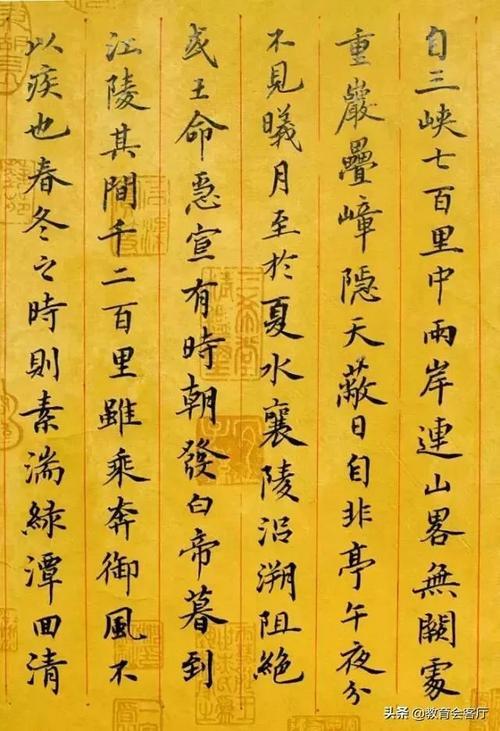 自三峡七百里中兩岸連山畧無闕處
重巖疊嶂隱天蔽日自非亭午夜分
不見曦月至於夏水襄陵沿溯阻絶
或王命急宣有時朝發白帝暮到
江陵其間千二百里雖乘奔御風不
以疾也春冬之時則素湍緑潭回清
头条@教育会客厅